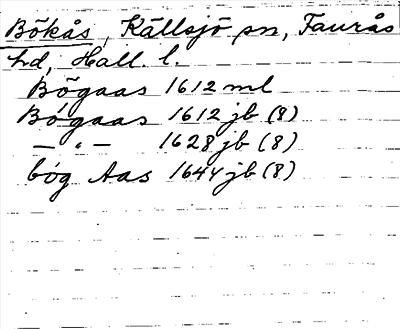 Bökås, Källsjö sn, Faurås
hd, Hall. l.
Bögaas 1612 ml
Bögaas 1612 jb (8)
— " — 1628 jb (8)
bög Aas 1644 jb (8)